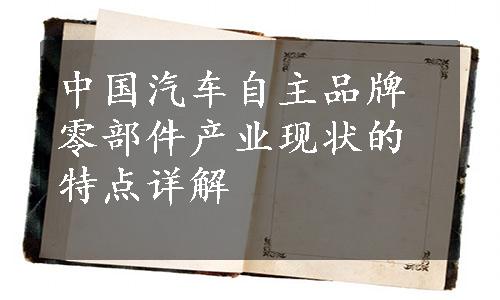 中国汽车自主品牌
零部件产业现状的
特点详解